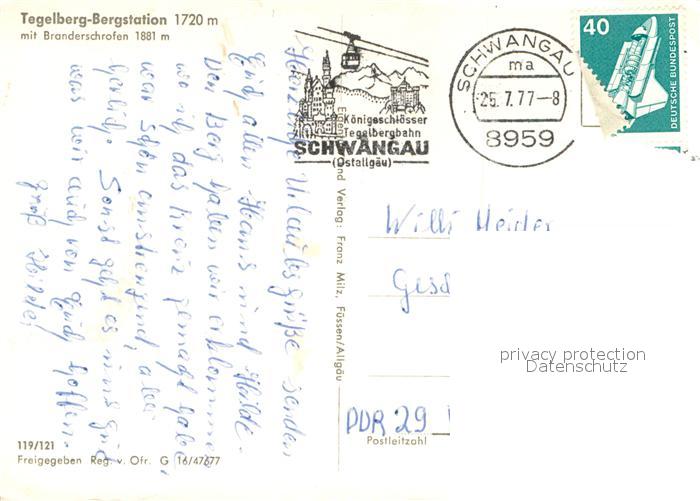 Tegelberg-Bergstation 1720 m
mit Branderschrofen 1881 m
Herzliche Urlaubsgrüße senden
Euch allen Hans und Hilde.
Den Berg haben wir erklommen
wo ich das Kreuz gemacht habe,
war schön anstrengend, aber
herrlich. Sonst geht es uns gut
was wir auch von Euch hoffen.
Gruß Hilde
119/121
Freigegeben Reg. v. Ofr. G 16/47677
Königsschlösser
Tegelbergbahn
SCHWANGAU
(Ostallgäu)
nd Verlag: Franz Milz, Füssen/Allgäu
SCHWANGAU
ma
25.7.77-8
8959
40
DEUTSCHE BUNDESPOST
Willi
Gess
DDR 29
Postleitzahl
privacy protection
Datenschutz